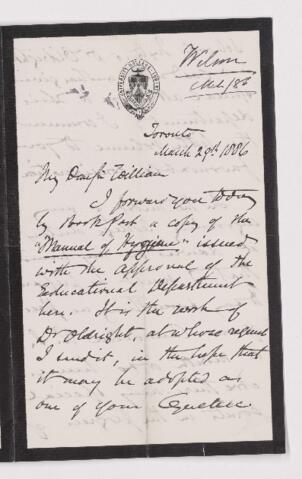 Wilson
Toronto
March 29th 1886
My Dear Sir William
I forward you today
by Book Post a copy of the
"Manual of Hygiene" issued
with the approval of the
Educational Department
here. It is the work of
Dr Oldright, at whose request
I send it, in the hope that
it may be adopted as
one of your Quebec